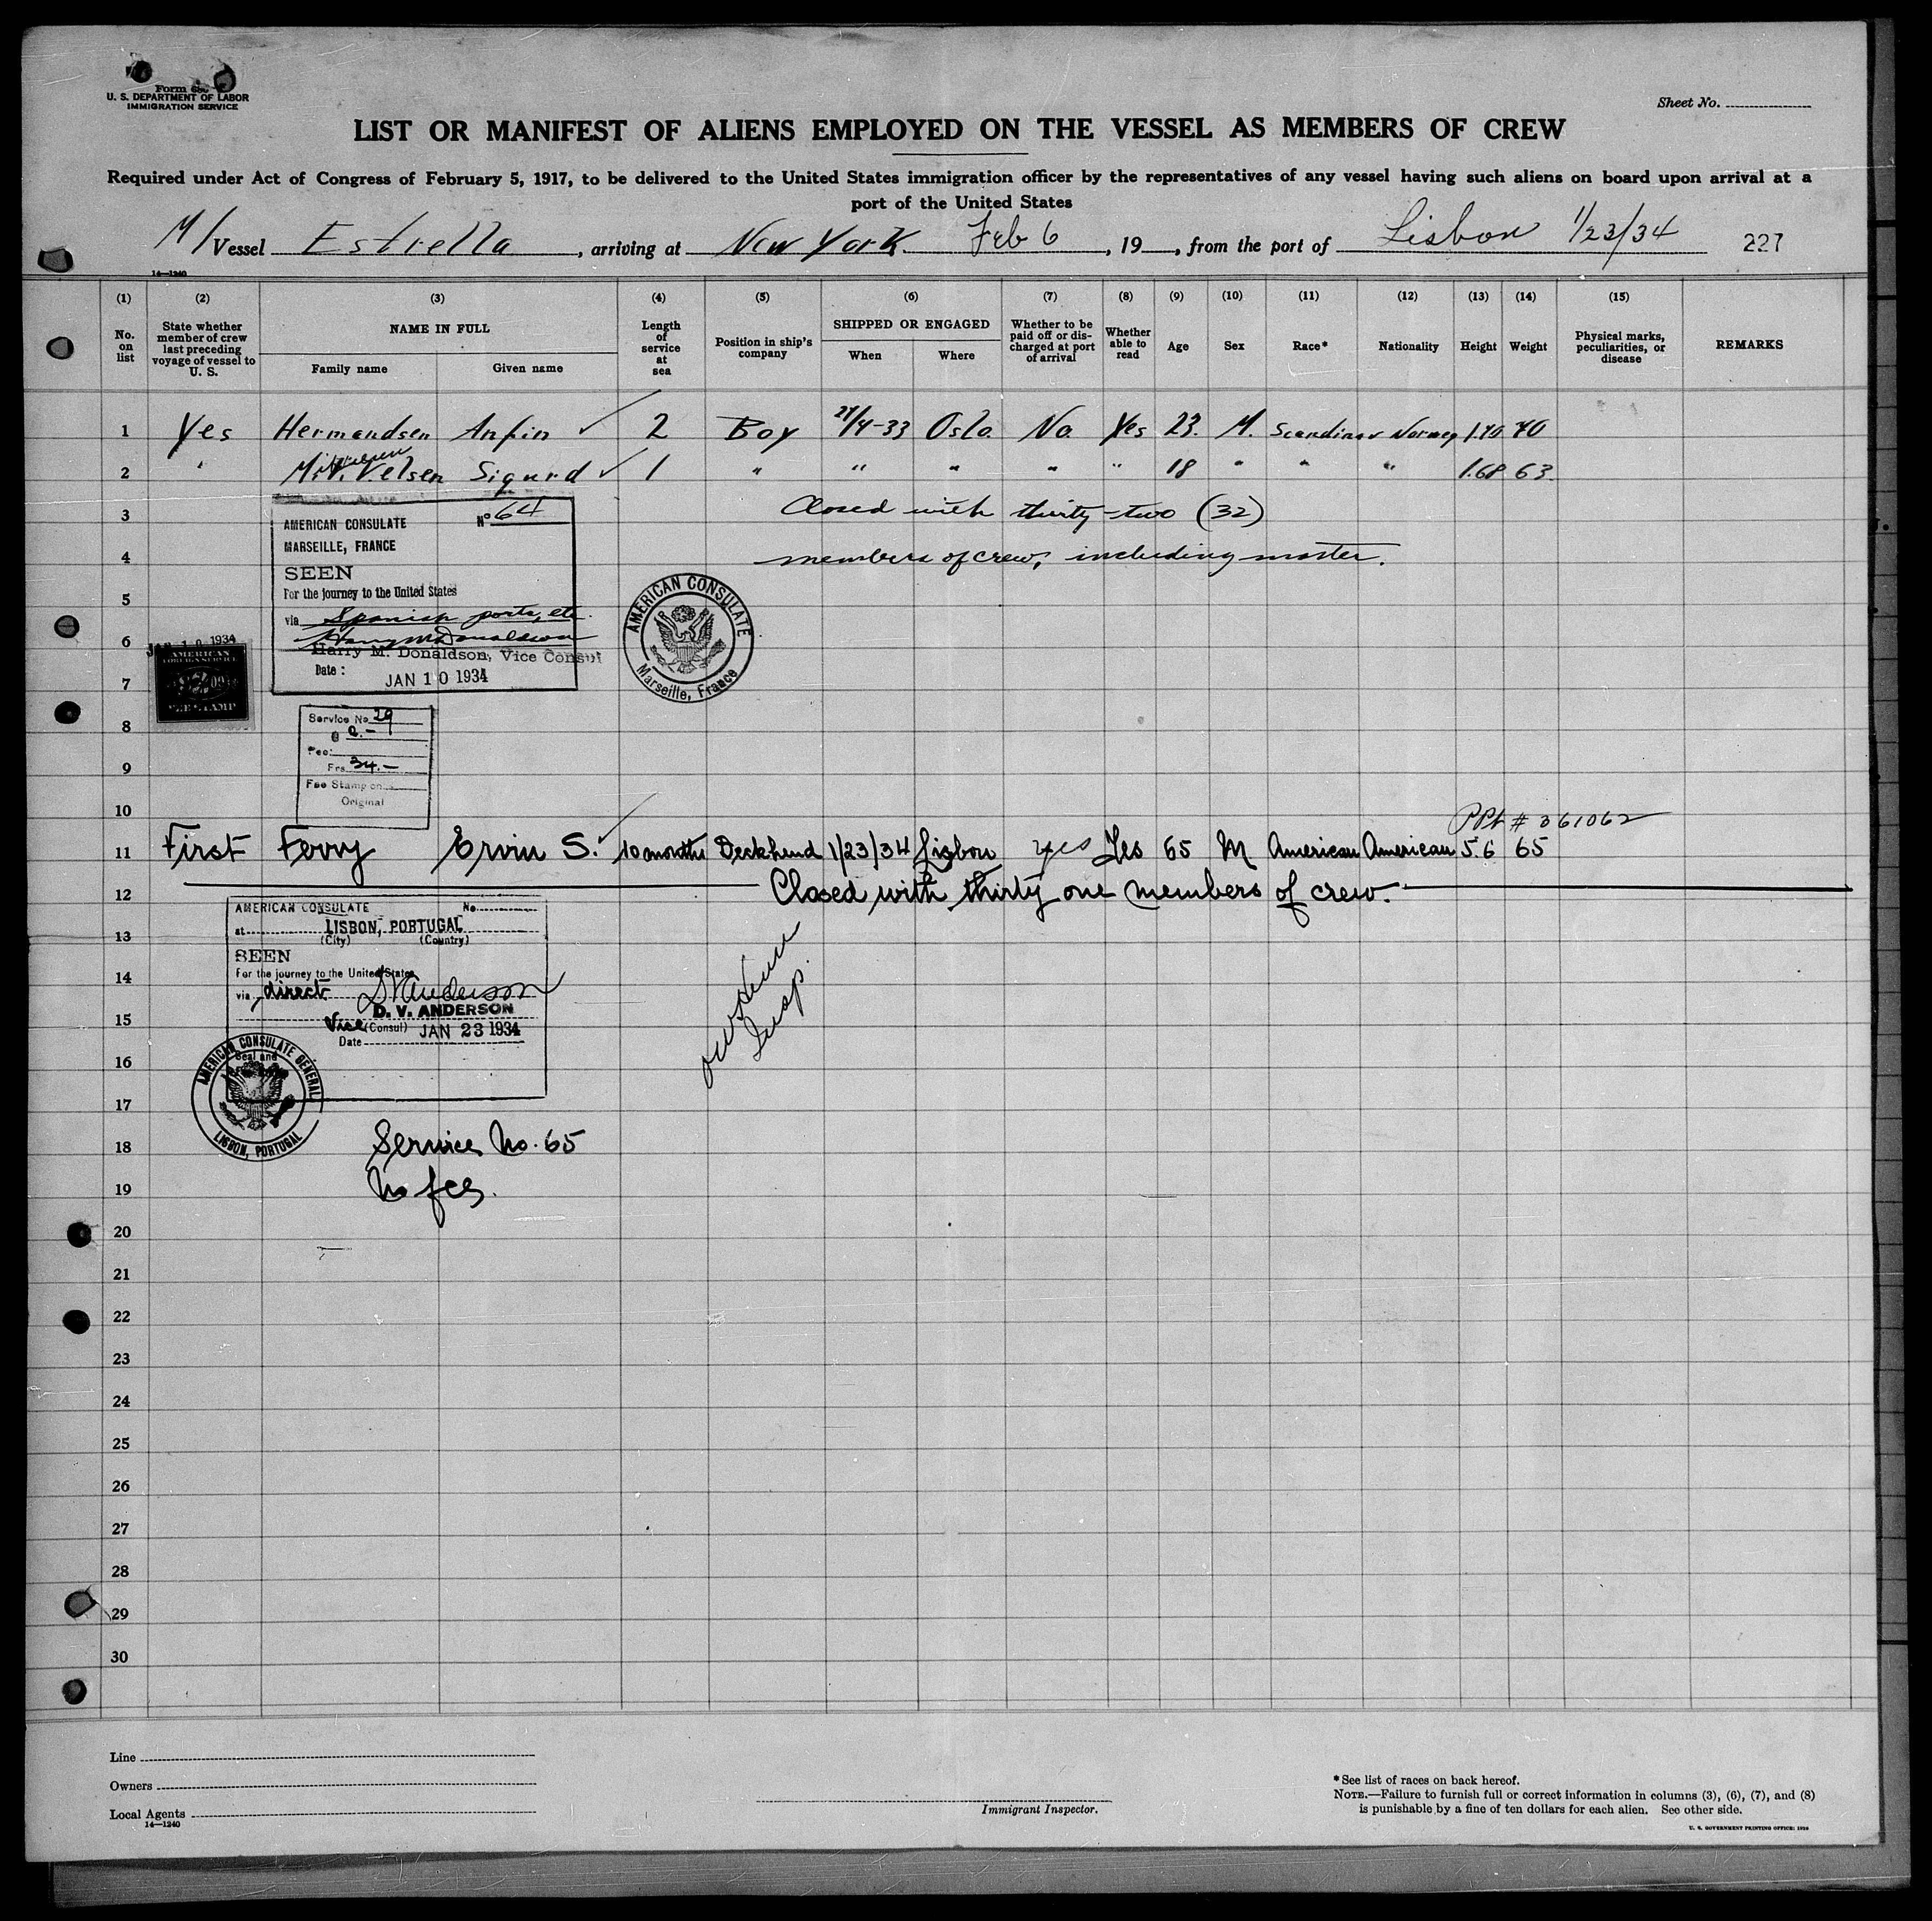 Form 680
U. S. DEPARTMENT OF LABOR
IMMIGRATION SERVICE
Sheet No.
LIST OR MANIFEST OF ALIENS EMPLOYED ON THE VESSEL AS MEMBERS OF CREW
Required under Act of Congress of February 5, 1917, to be delivered to the United States immigration officer by the representatives of any vessel having such aliens on board upon arrival at a
port of the United States
M/Vessel Estrella, arriving at New York Feb 6, 19, from the port of Lisbon 1/23/34 227
14—1240
(1) (2) (3) (4) (5) (6) (7) (8) (9) (10) (11) (12) (13) (14) (15)
No. on list
State whether member of crew last preceding voyage of vessel to U. S.
NAME IN FULL
Family name
Given name
Length of service at sea
Position in ship's company
SHIPPED OR ENGAGED
When
Where
Whether to be paid off or discharged at port of arrival
Whether able to read
Age
Sex
Race*
Nationality
Height
Weight
Physical marks, peculiarities, or disease
REMARKS
1 Yes Hermandsen Anfin ✓ 2 Boy 29/4-33 Oslo. No. Yes 23. M. Scandinav Norweg 1.70 70
2 " Sigurd ✓ 1 " " " " " 18 " " " 1.68 63.
3 Closed with thirty-two (32)
4 members of crew, including master.
AMERICAN CONSULATE No 64
MARSEILLE, FRANCE
SEEN
For the journey to the United States
via Spanish ports, etc.
Harry M. Donaldson
Harry M. Donaldson, Vice Consul
Date: JAN 10 1934
AMERICAN CONSULATE
Marseille, France
JAN 10 1934
AMERICAN
FOREIGN SERVICE
FEE STAMP
5
6
7
8
9
10
Service No 29
Fee:
Frs 34.-
Fee Stamp on
Original
PPt # 361062
11 First Ferry Ervin S. ✓ 10 months Deckhand 1/23/34 Lisbon yes Yes 65 M American American 5.6 65
12 Closed with thirty one members of crew.
AMERICAN CONSULATE No.
at LISBON, PORTUGAL
(City) (Country)
SEEN
For the journey to the United States
via direct
D. V. Anderson
D. V. ANDERSON
Vice (Consul) JAN 23 1934
Date
Seal and
AMERICAN CONSULATE GENERAL
LISBON, PORTUGAL
Insp.
Service No. 65
No fee.
13
14
15
16
17
18
19
20
21
22
23
24
25
26
27
28
29
30
Line
Owners
Local Agents
14—1240
Immigrant Inspector.
*See list of races on back hereof.
NOTE.—Failure to furnish full or correct information in columns (3), (6), (7), and (8)
is punishable by a fine of ten dollars for each alien. See other side.
U. S. GOVERNMENT PRINTING OFFICE: 1929